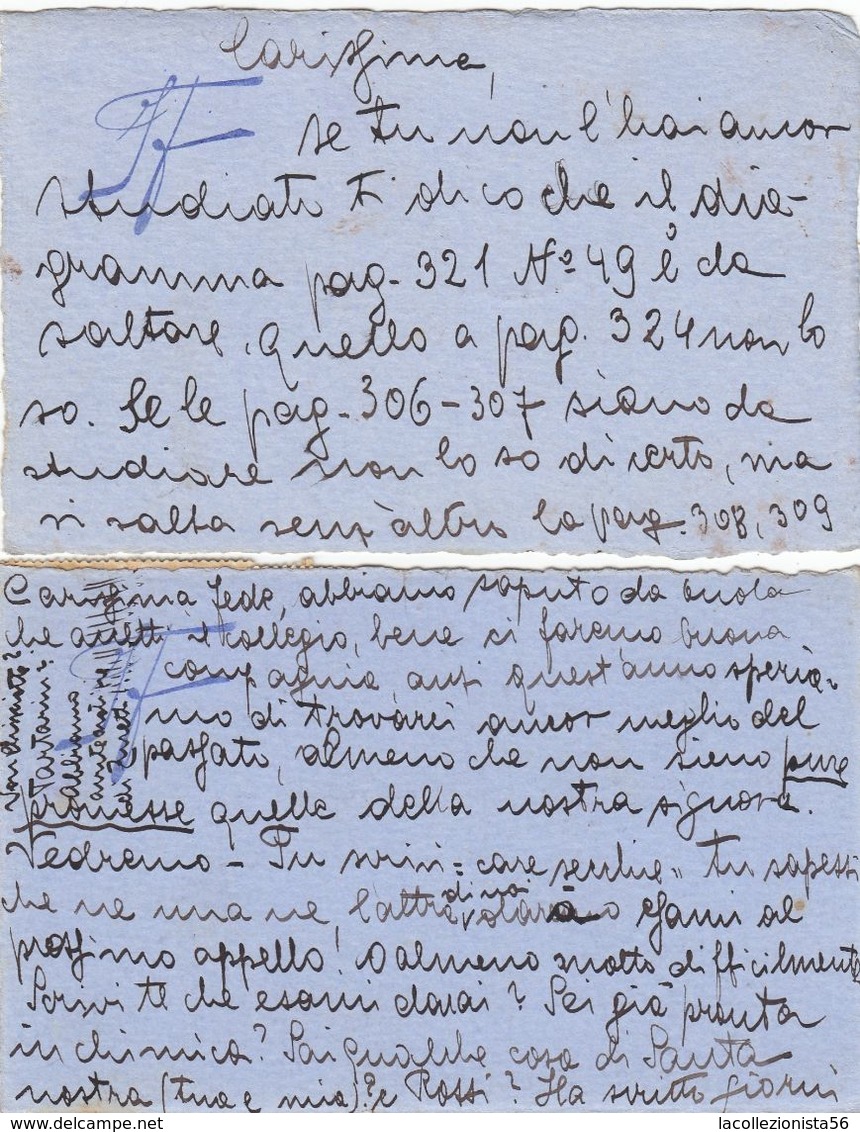 Carissima,
se tu non l'hai ancor
studiato ti dico che il dia-
gramma pag. 321 Nº 49 è da
saltare, quello a pag. 324 non lo
so. Se le pag. 306-307 siano da
studiare non lo so di certo, ma
si salta senz'altro la pag. 308, 309
Carissima Fede, abbiamo saputo da
che il collegio, bene ci faremo buona
compagnia, anzi quest'anno speria-
mo di trovarci ancor meglio del
passato, almeno che non sieno pure
promesse quelle della nostra signora.
Vedremo - Tu scrivi = care = tu sapessi
che ne una ne l'altra di noi esami al
prossimo appello! O almeno molto difficilmente
Scrivi te che esami darai? Sei già pronta
in chimica? Sai qualche cosa di Santa
nostra (tua e mia)? e Rossi? Ha scritto giorni
abbiamo
FF
FF
www.delcampe.net
lacollezionista56